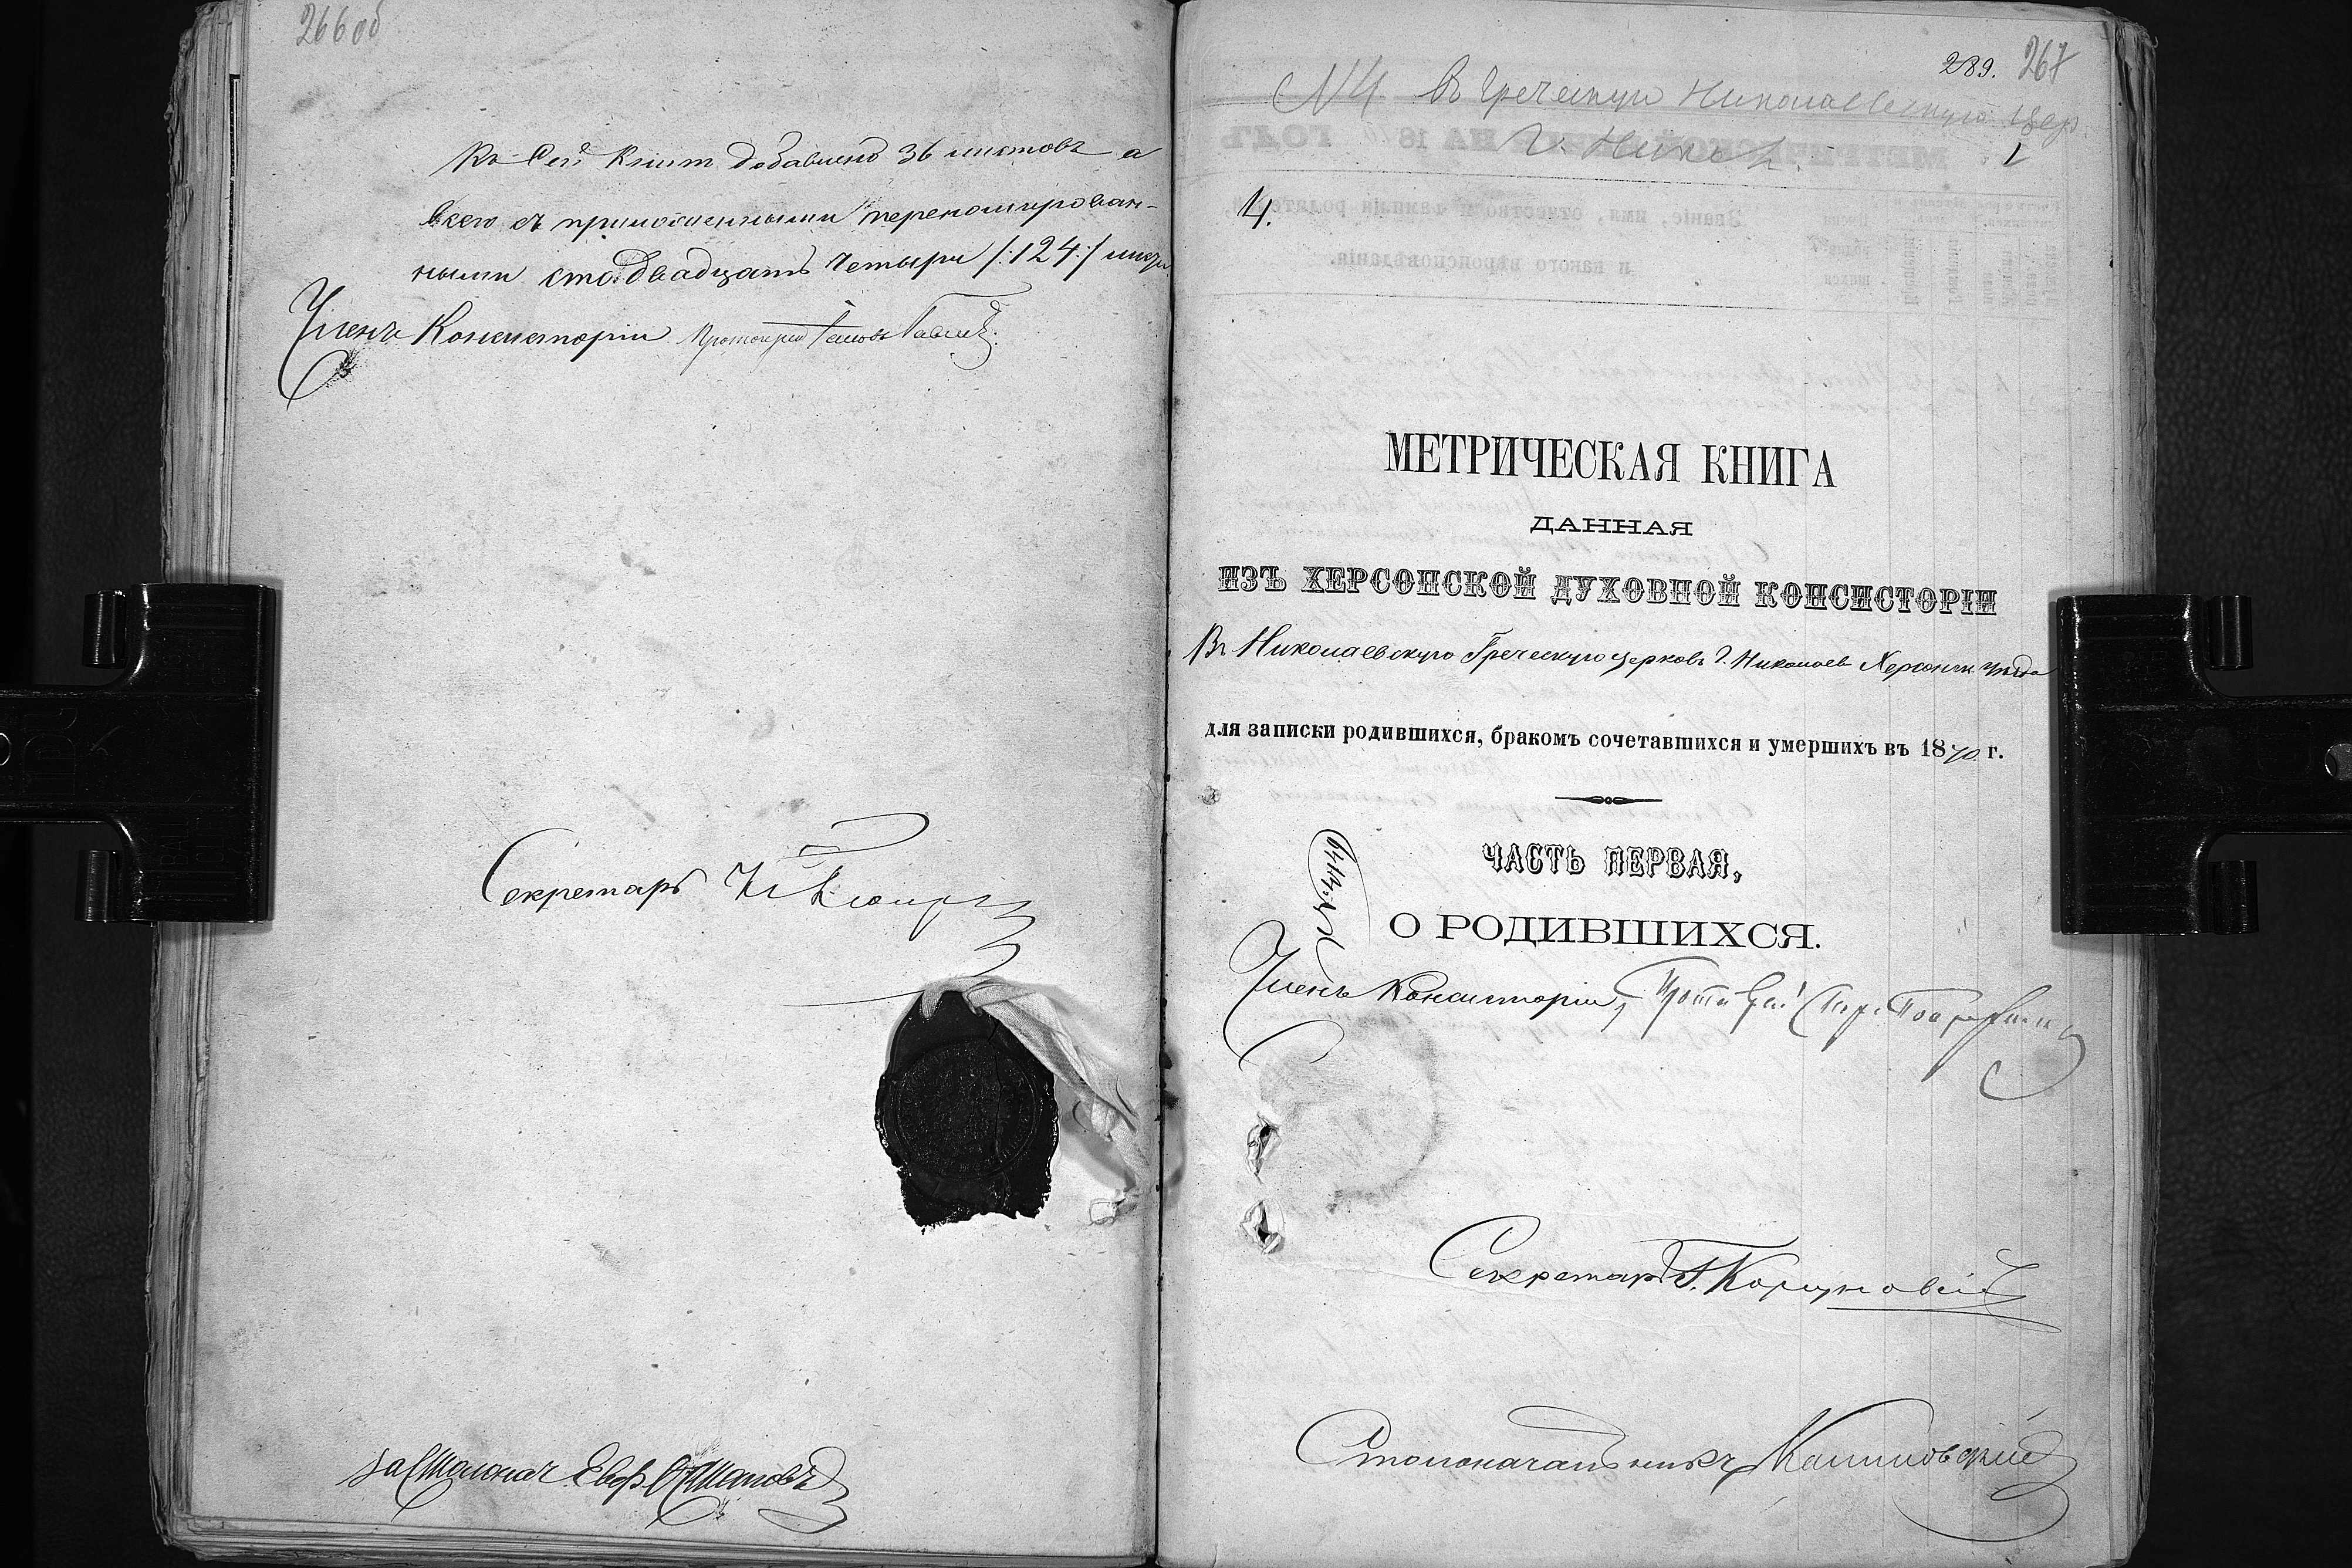 266 об
Къ сей книгѣ добавлено 36 листовъ а
всего съ приложенными переномирован-
ными сто двадцать четыре /:124:/ листа
Членъ Консисторіи Протоіерей
Секретарь
За Столонач. Евф.
289. 267
N 4 Въ Греческую Николаевскую цер.
г. Никол.
1
4.
МЕТРИЧЕСКАЯ КНИГА
ДАННАЯ
ИЗЪ ХЕРСОНСКОЙ ДУХОВНОЙ КОНСИСТОРІИ
Въ Николаевскую Греческую церковь г. Николаев Херсонск. уѣзда
для записки родившихся, бракомъ сочетавшихся и умершихъ въ 1870 г.
ЧАСТЬ ПЕРВАЯ,
О РОДИВШИХСЯ.
Членъ Консисторіи, Протоіерей
Секретарь Г.
Столоначальникъ